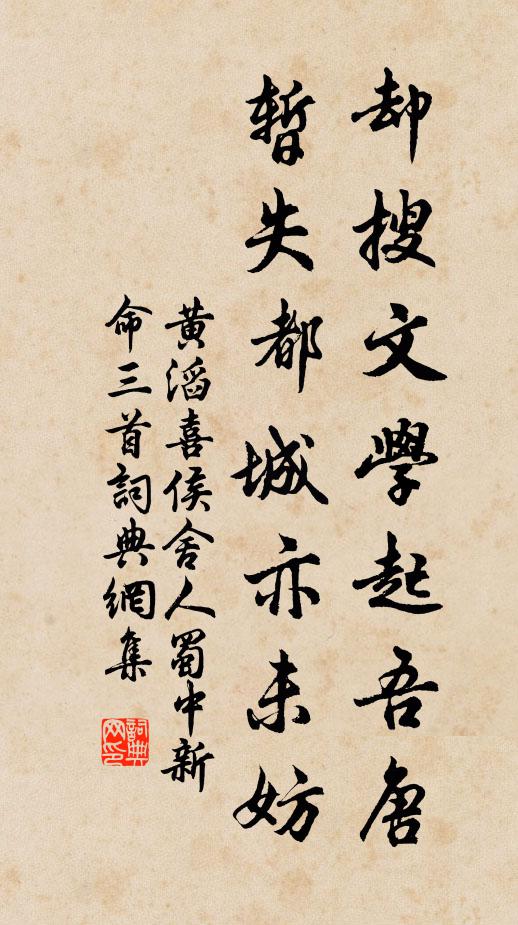 却搜文學起吾唐
暫失都城亦未妨
黃滔喜侯舍人蜀中新
命三首詞典網集
詞典
网印